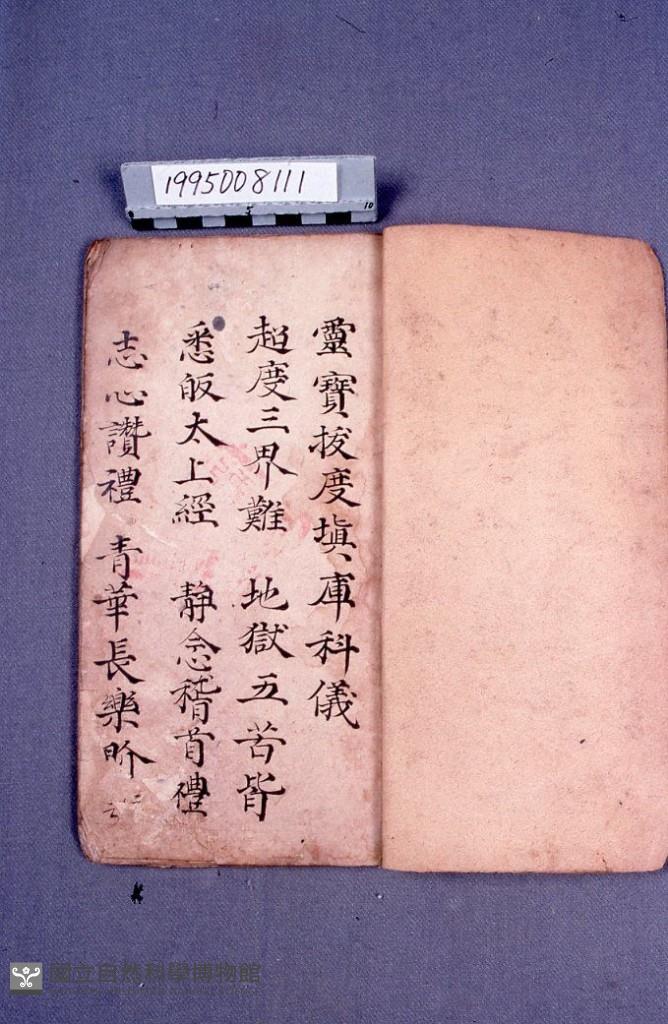 1995008111
5
10
靈寶拔度塡庫科儀
超度三界難 地獄五苦皆
悉皈太上經 静念稽首禮
志心讚禮 青華長樂界
國立自然科學博物館